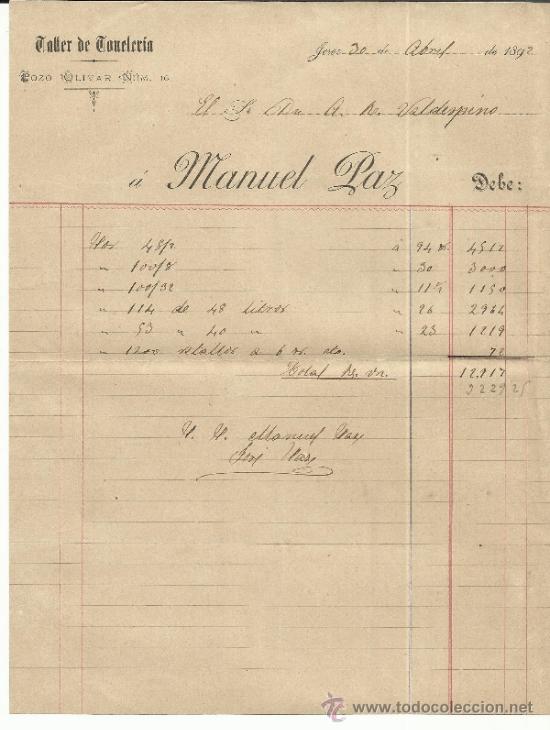 Taller de Tonelería
Pozo Olivar Núm. 16
Jerez 30 de Abril de 1892
El Sr Dn A. R. Valdespino
á Manuel Paz Debe:
Por 48/2 á 94 rs. 4512
" 100/8 " 30 3000
" 100/32 " 11 1/2 1150
" 114 de 48 litros " 26 2964
" 53 " 40 " " 23 1219
" 1200 a 6 rs. do. 72
Total Rs. vn. 12.917
322925
P. P. Manuel Paz
José Paz
todocoleccion
www.todocoleccion.net